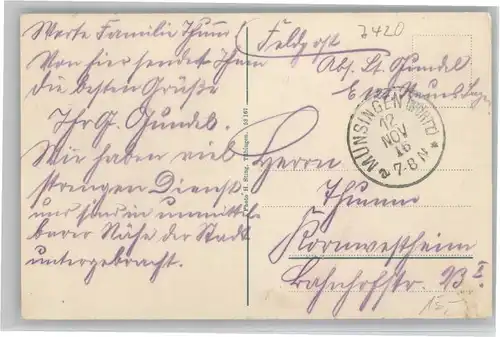 Werte Familie Thumm!
Von hier sendet Ihnen
die besten Grüße
Ihr G. Gundel.
Wir haben viel
strengen Dienst
und sind in unmittel
barer Nähe der Stadt
untergebracht.
Photo H. Sting, Tübingen.
Feldpost
7420
Abs. Lt. Gundel
MÜNSINGEN (WÜRTT.)
12
NOV
16
7-8 N
a
*
Herrn
Thumm
Kornwestheim
Bahnhofstr. 23 I.
15,-